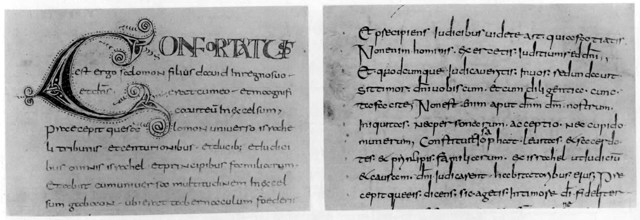 CONFORTATUS
est ergo salomon filius david In regno suo
et dns erat cum eo et magnifi
cavit eum In excelsum
Precepitque salomon universo israhe
li tribunis et centurionibus et ducibus et iudici
bus omnis israhel et principibus familiarum
Et abiit cum universa multitudinem In excel
sum gabaon ubi erat tabernaculum foederis
Et precipiens Iudicibus videte ait quid faciatis
Non enim hominis exercetis Iudicium sed dni
Et quodcumque Iudicaveritis In vos redundavit
Sit timor dni vobiscum et cum diligentia cunc
ta facite Non est enim aput dnm dm nostrum
Iniquitas nec personarum acceptio nec cupido
munerum Constituit Iosaphat levitas et sacerdo
tes et principes familiarum ex israhel ut Iudiciu
et causam dni Iudicarent habitatoribus eius Pre
cepitque eis dicens sic agetis In timore dni fideliter